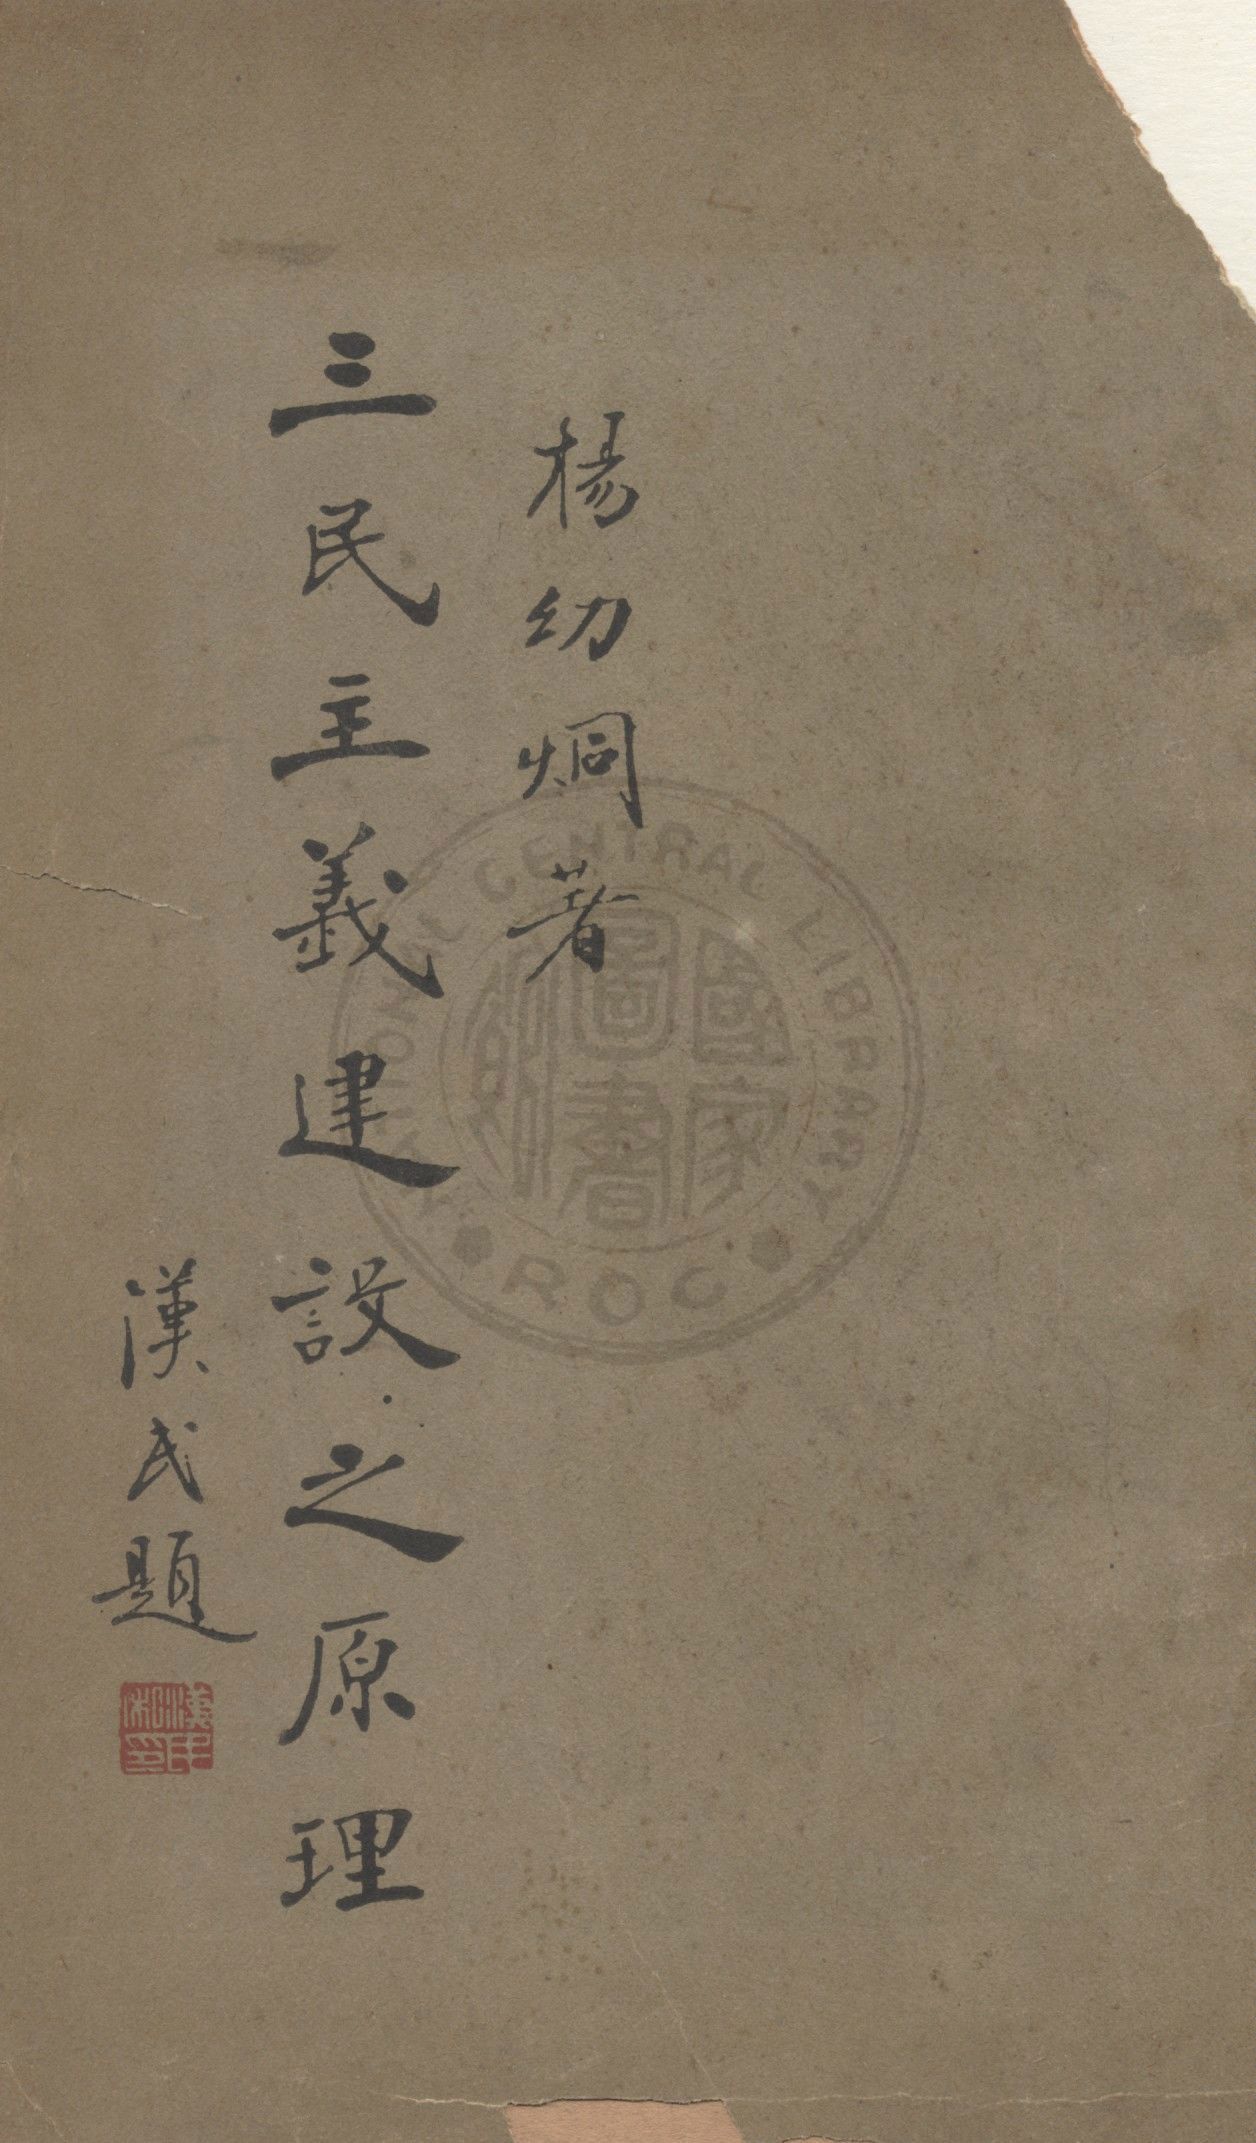 楊幼炯著
三民主義建設之原理
漢民題
NATIONAL CENTRAL LIBRARY
國家圖書館
ROC